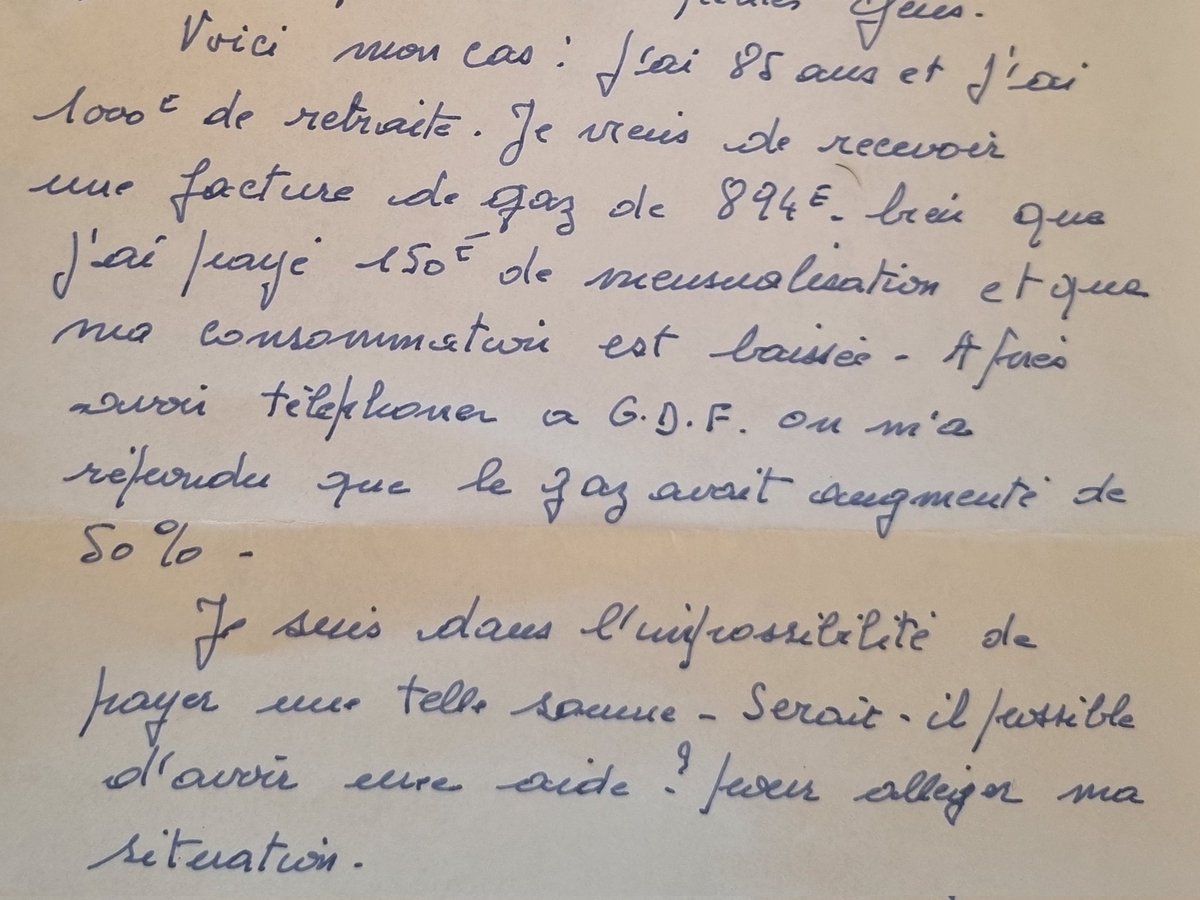 petites gens.
Voici mon cas : J'ai 85 ans et j'ai
1000€ de retraite. Je viens de recevoir
une facture de gaz de 894€. bien que
j'ai payé 150€ de mensualisation et que
ma consommation est baissée - Après
avoir téléphoner a G.D.F. on m'a
répondu que le gaz avait augmenté de
50% -
Je suis dans l'impossibilité de
payer une telle somme - Serait-il possible
d'avoir une aide ? pour alléger ma
situation.